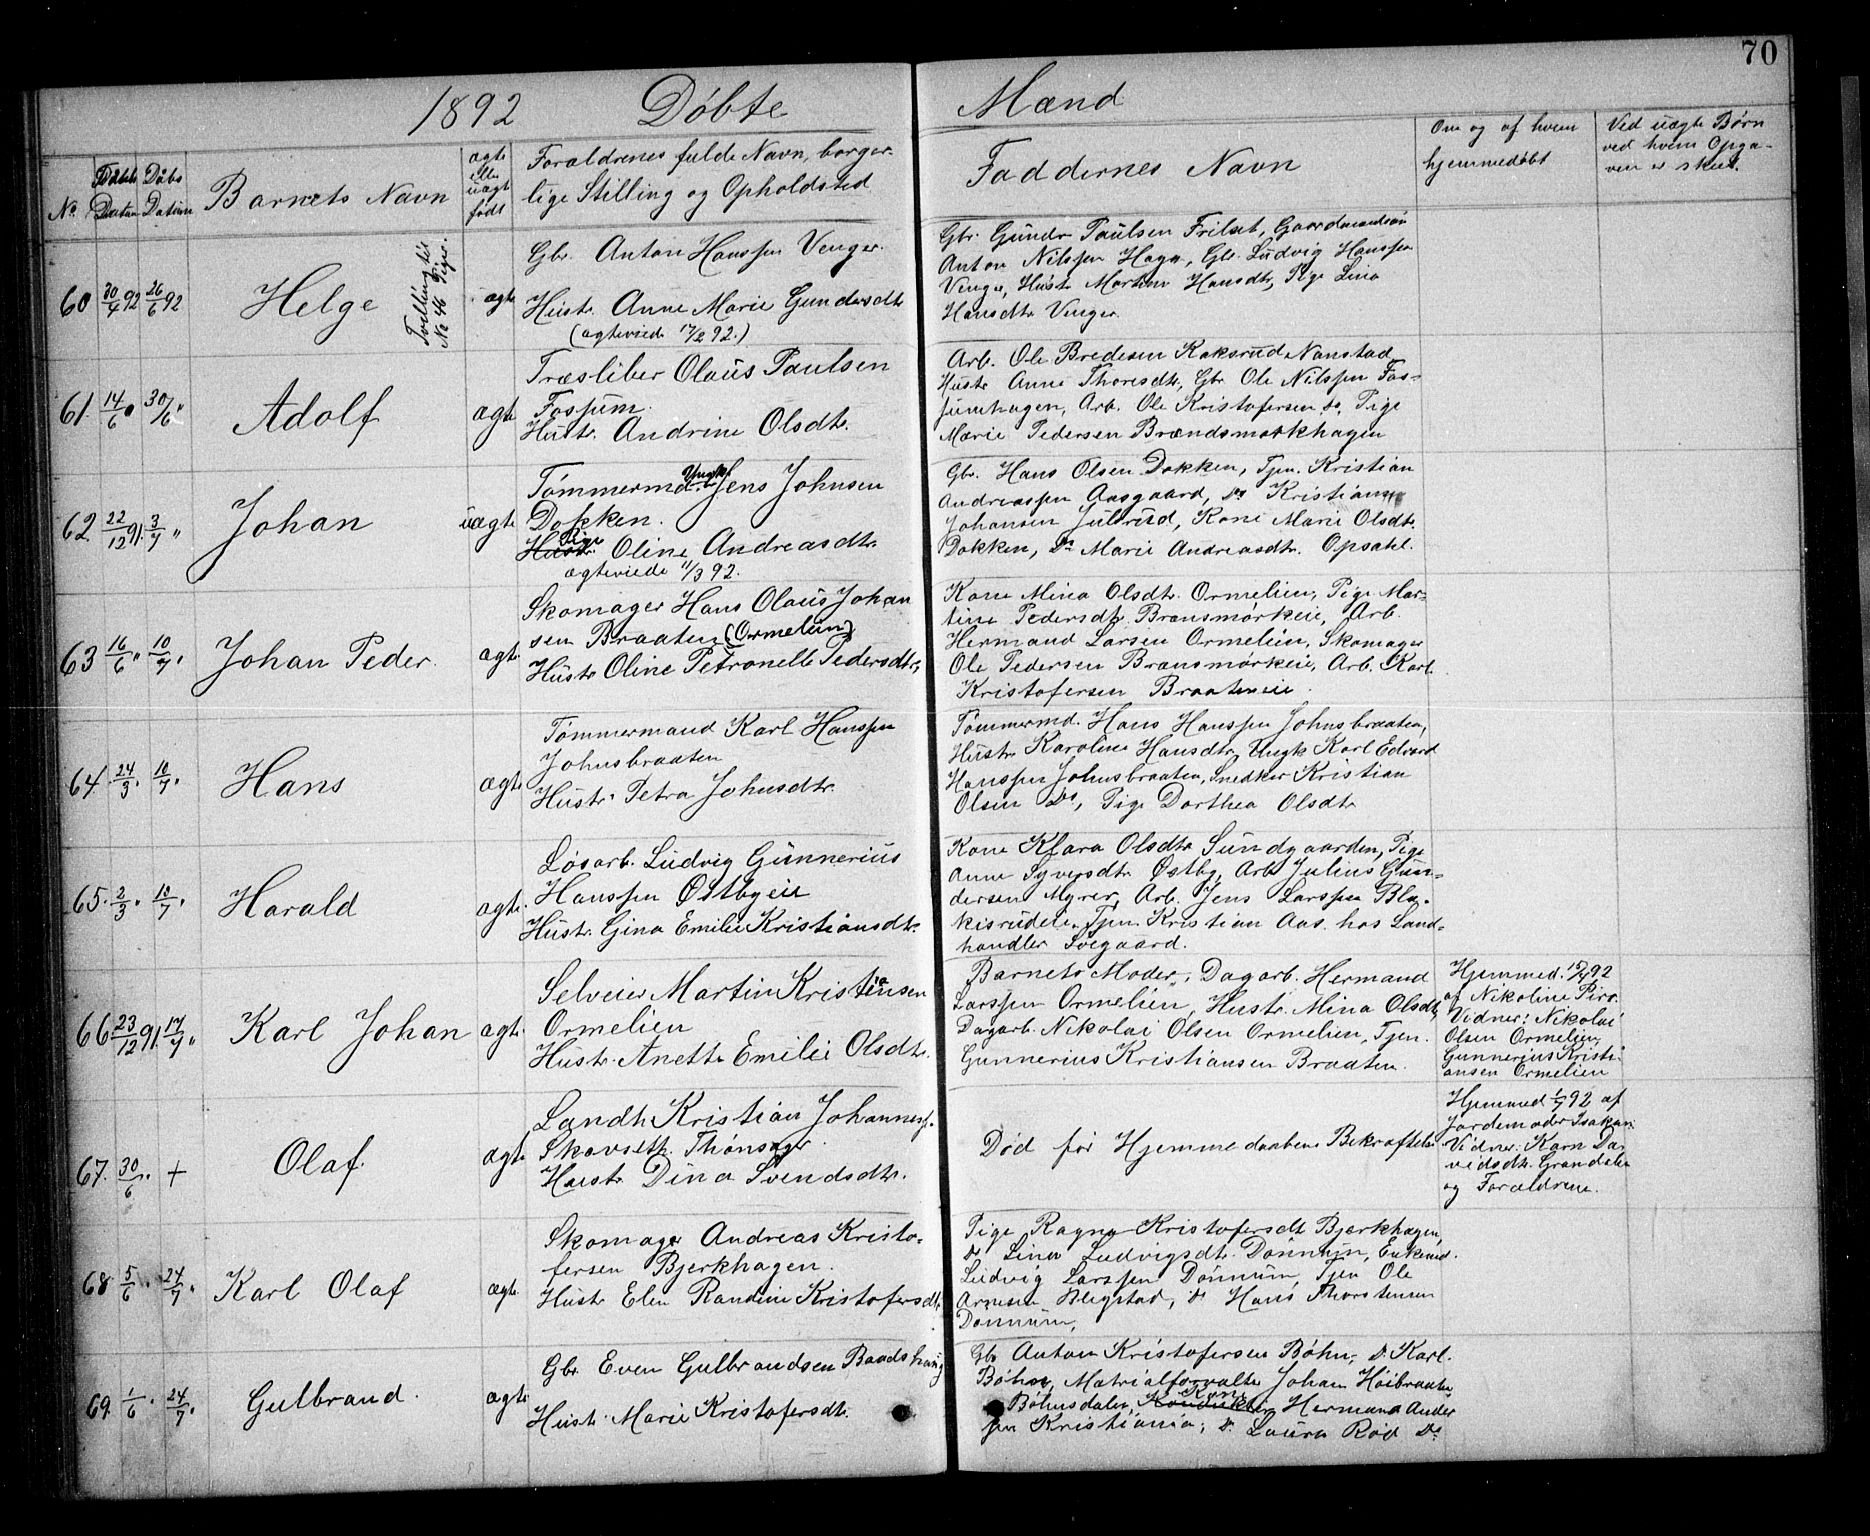 70
1892 Döbte Mænd
No
Födsels Datum
Döbs Datum
Barnets Navn
ægte eller uægte födt
Forældrenes fulde Navn, borger-
lige Stilling og Opholdsted
Faddernes Navn
Om og af hvem
hjemmedöbt
Ved uægte Børn
ved hvem Opga-
ven er skeet.
60 30/4 92 26/6 92 Helge
Tvilling til
No 46 Piger.
uægte
Gbr. Anton Hanssen Venger.
Hustr. Anne Marie Gundersdtr.
(ægteviede 17/2 92.)
Gbr. Gundr Paulsen Frilset, Gaardmandssön
Anton Nilssen Haga, Gbr. Ludvig Hanssen
Venger, Hustr. Martine Hansdtr, Pige Lina
Hansdtr Venger
61. 14/6 " 30/6 " Adolf
ægte
Træsliber Olaus Paulsen
Fossum.
Hustr. Andrine Olsdtr.
Arb. Ole Bredesen Koksrud Nanstad
Hustr Anne Thoresdtr, Gbr. Ole Nilssen Fos-
sumhagen, Arb. Ole Kristofersen do, Pige
Marie Pedersen Brændsmørkhagen
62 22/12 91. 3/7 " Johan
uægte
Tömmermd. Ungk. Jens Johnsen
Dokken.
Hustr. Pige Oline Andreasdtr.
ægteviede 11/3 92.
Gbr. Hans Olsen Dokken, Tjen. Kristian
Andreassen Aasgaard, do Kristian
Johansen Julsrud, Kone Marie Olsdtr.
Dokken, do Marie Andreasdtr. Opsahl.
63 16/6 " 10/7 " Johan Peder.
ægte
Skomager Hans Olaus Johan
sen Braaten (Ormelien)
Hustr Oline Petronelle Pedersdtr,
Kone Mina Olsdtr. Ormelien, Pige Mar-
tine Pedersdtr. Brænsmørkeie, Arb.
Hermand Larsen Ormelien, Skomager
Ole Pedersen Brænsmørkeie, Arb. Karl
Kristofersen Braateneie.
64. 24/3 " 10/7 " Hans
ægte
Tömmermand Karl Hanssen
Johnsbraaten
Hustr. Petra Johnsdtr.
Tömmermd. Hans Hanssen Johnsbraaten,
Hustr Karoline Hansdtr, Ungk Karl Edvard
Hanssen Johnsbraaten, Snedker Kristian
Olsen do, Pige Dorthea Olsdtr
65. 2/3 " 10/7 " Harald
ægte.
Løsarb. Ludvig Gunnerius
Hanssen Østbyeie
Hustr. Gina Emilie Kristiansdtr.
Kone Klara Olsdtr Sundgaarden, Pige
Anne Syversdtr Østby, Arb. Julius Gun-
dersen Myrer, Arb. Jens Larssen Bla-
kisrudeie, Tjen. Kristian Aas hos Land-
handler Svegaard.
66 23/12 91. 17/7 " Karl Johan
ægte.
Selveier Martin Kristiansen
Ormelien
Hustr. Anette Emilie Olsdtr.
Barnets Moder, Dagarb. Hermand
Larssen Ormelien, Hustr. Mina Olsdtr,
Dagarb. Nikolai Olsen Ormelien, Tjen.
Gunnerius Kristiansen Braaten.
Hjemmed. 15/4 92
af Nikoline Piro.
Vidner: Nikolai
Olsen Ormelien,
Gunnerius Kristi-
ansen Ormelien
67. 30/6 " + Olaf.
ægte
Landh. Kristian Johanness.
Skovseth. Thönsager
Hustr. Dina Svendsdtr.
Död för Hjemmedaabens Bekræftelse
Hjemmed 1/7 92 af
Jordemoder Isaksen
Vidner. Karn Da-
vidsdtr. Grandalen
og Forældrene.
68. 5/6 " 24/7 " Karl Olaf
ægte
Skomager Andreas Kristo-
fersen Bjerkhagen.
Hustr Elen Randine Kristofersdtr.
Pige Ragna Kristofersdt. Bjerkhagen,
do Lina Ludvigsdtr. Dönnum, Enkemd.
Ludvig Larssen Dönnum, Tjen Ole
Arnesen Blegstad, do Hans Thorstensen
Dönnum,
69. 1/6 " 24/7 " Gulbrand.
ægte
Gbr Even Gulbrandsen Baadshaug
Hustr. Marie Kristofersdtr.
Gbr Anton Kristofersen Böhn, do Karl.
Böhn, Matrialforvalter Johan Höibraaten
Böhnsdalen, Konduktör Kone Hermana Ander
sen Kristiania, do Laura Röd do